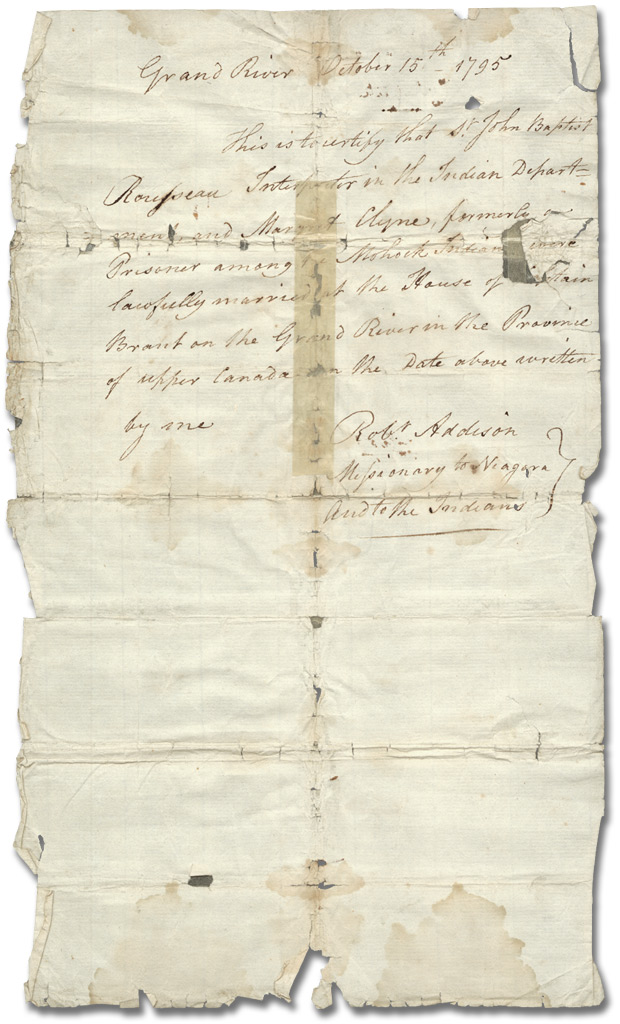 Grand River October 15th 1795
This is to certify that St John Baptist
Rousseau Interpreter in the Indian Depart=
ment and Margret Clyne, formerly a
Prisoner among the Mohock Indians were
lawfully married at the House of
Brant on the Grand River in the Province
of upper Canada on the Date above written
by me
Robt Addison
Missionary to Niagara
And to the Indians